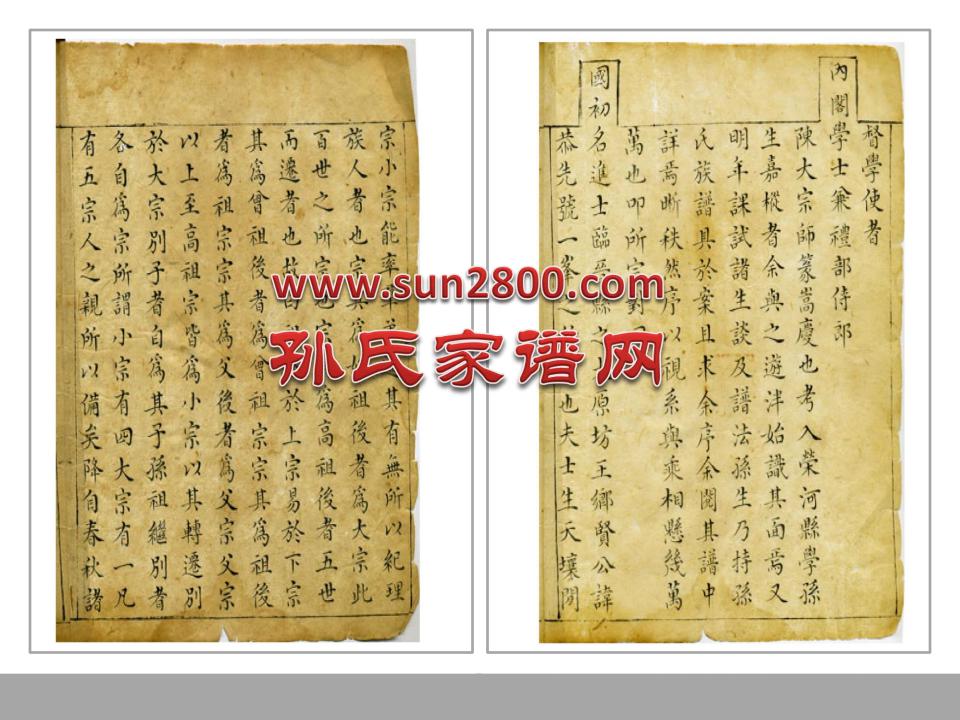 督學使者
內閣學士兼禮部侍郎
陳大宗師篆嵩慶也考入榮河縣學孫
生嘉樅者余與之遊泮始識其面焉又
明年課試諸生談及譜法孫生乃持孫
氏族譜具於案且求余序余閱其譜中
詳焉晰秩然序以視系與乘相懸幾萬
萬也叩所宗對
國初名進士臨晉縣之原坊王鄉賢公諱
恭先號一峯之也夫士生天壤間
宗小宗能率其有無所以紀理
族人者也宗其爲祖後者爲大宗此
百世之所宗也宗爲高祖後者五世
而遷者也故曰祖於上宗易於下宗
其爲曾祖後者爲曾祖宗宗其爲祖後
者爲祖宗宗其爲父後者爲父宗父宗
以上至高祖宗皆爲小宗以其轉遷別
於大宗別子者自爲其子孫祖繼別者
各自爲宗所謂小宗有四大宗有一凡
有五宗人之親所以備矣降自春秋諸
www.sun2800.com
孙氏家谱网